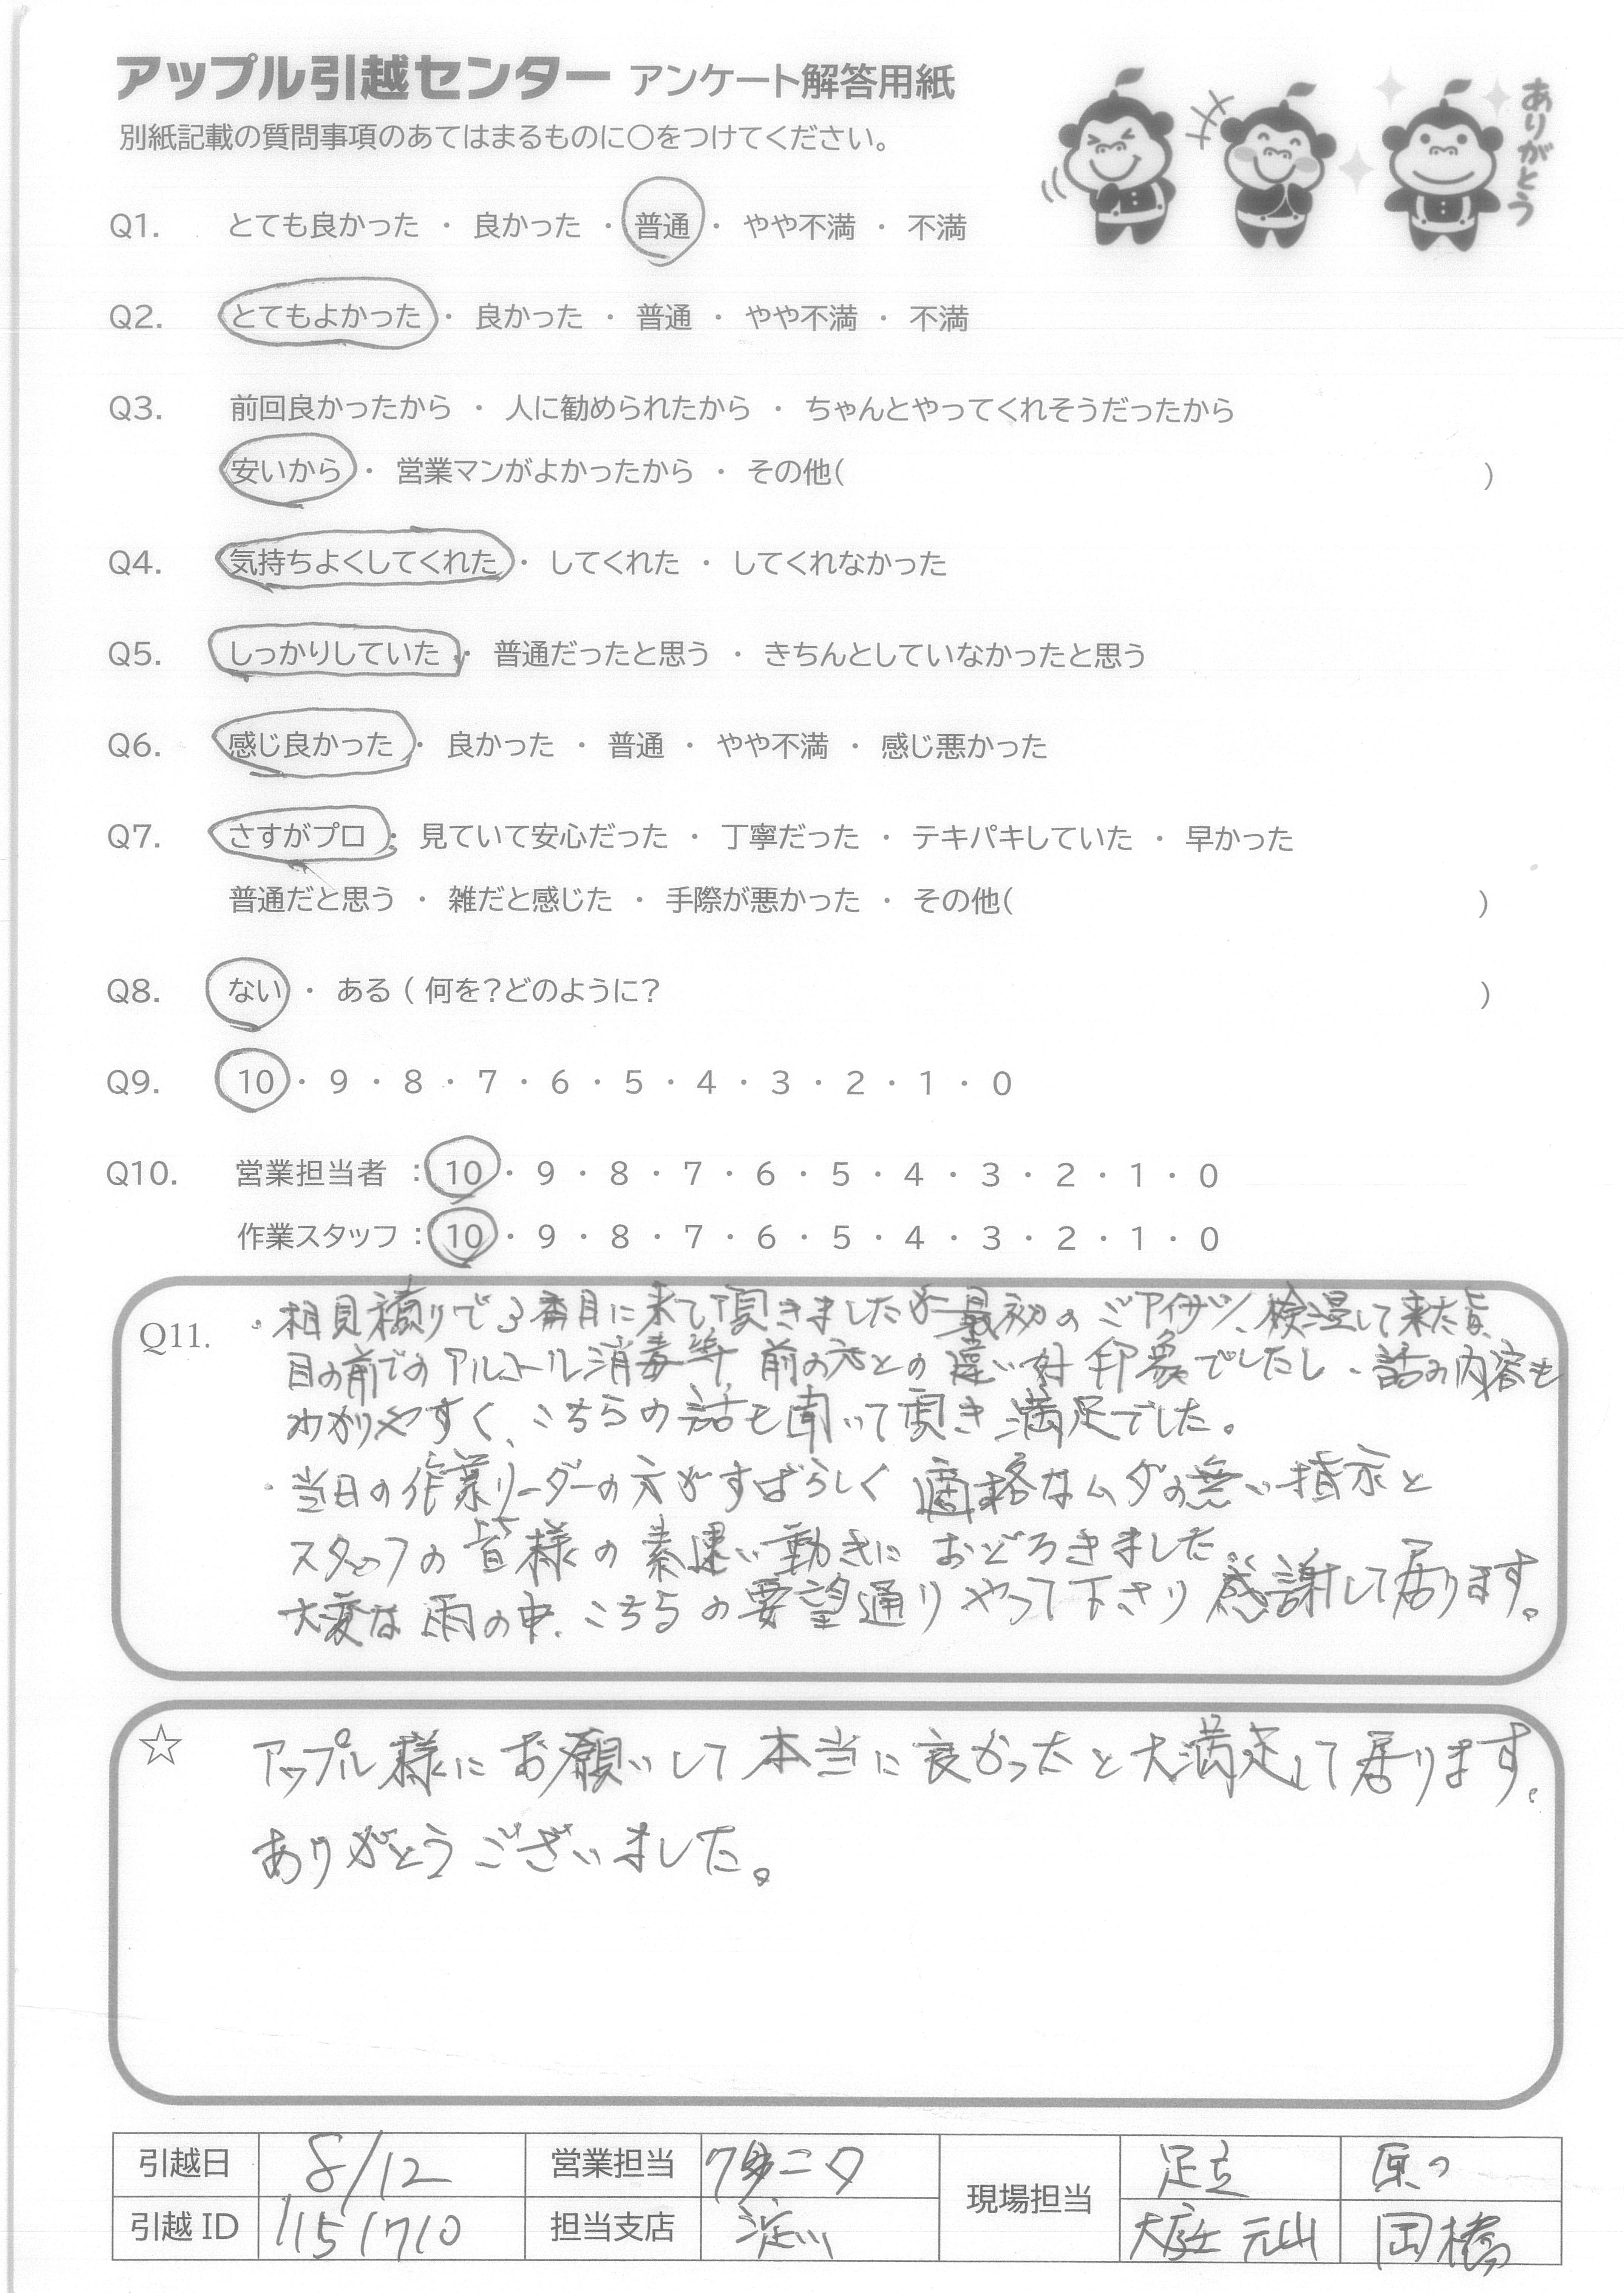 アップル引越センター アンケート解答用紙
別紙記載の質問事項のあてはまるものに〇をつけてください。
ありがとう
Q1. とても良かった ・ 良かった ・ 普通 ・ やや不満 ・ 不満
Q2. とてもよかった ・ 良かった ・ 普通 ・ やや不満 ・ 不満
Q3. 前回良かったから ・ 人に勧められたから ・ ちゃんとやってくれそうだったから
安いから ・ 営業マンがよかったから ・ その他( )
Q4. 気持ちよくしてくれた ・ してくれた ・ してくれなかった
Q5. しっかりしていた ・ 普通だったと思う ・ きちんとしていなかったと思う
Q6. 感じ良かった ・ 良かった ・ 普通 ・ やや不満 ・ 感じ悪かった
Q7. さすがプロ ・ 見ていて安心だった ・ 丁寧だった ・ テキパキしていた ・ 早かった
普通だと思う ・ 雑だと感じた ・ 手際が悪かった ・ その他( )
Q8. ない ・ ある ( 何を?どのように? )
Q9. 10 ・ 9 ・ 8 ・ 7 ・ 6 ・ 5 ・ 4 ・ 3 ・ 2 ・ 1 ・ 0
Q10. 営業担当者 : 10 ・ 9 ・ 8 ・ 7 ・ 6 ・ 5 ・ 4 ・ 3 ・ 2 ・ 1 ・ 0
作業スタッフ : 10 ・ 9 ・ 8 ・ 7 ・ 6 ・ 5 ・ 4 ・ 3 ・ 2 ・ 1 ・ 0
Q11. ・相見積りで3番目に来て頂きましたが最初のごアイサツ、検温して来た旨、
目の前でのアルコール消毒等、前の方との違い好印象でしたし、話の内容も
わかりやすく、こちらの話も聞いて頂き満足でした。
・当日の作業リーダーの方がすばらしく 適格なムダの無い指示と
スタッフの皆様の素速い動きにおどろきました。
大変な雨の中、こちらの要望通りやって下さり感謝して居ります。
☆ アップル様にお願いして本当に良かったと大満足して居ります。
ありがとうございました。
引越日 8/12 営業担当 現場担当 足立
引越ID 1151710 担当支店 淀川 大庭 元山 岡橋